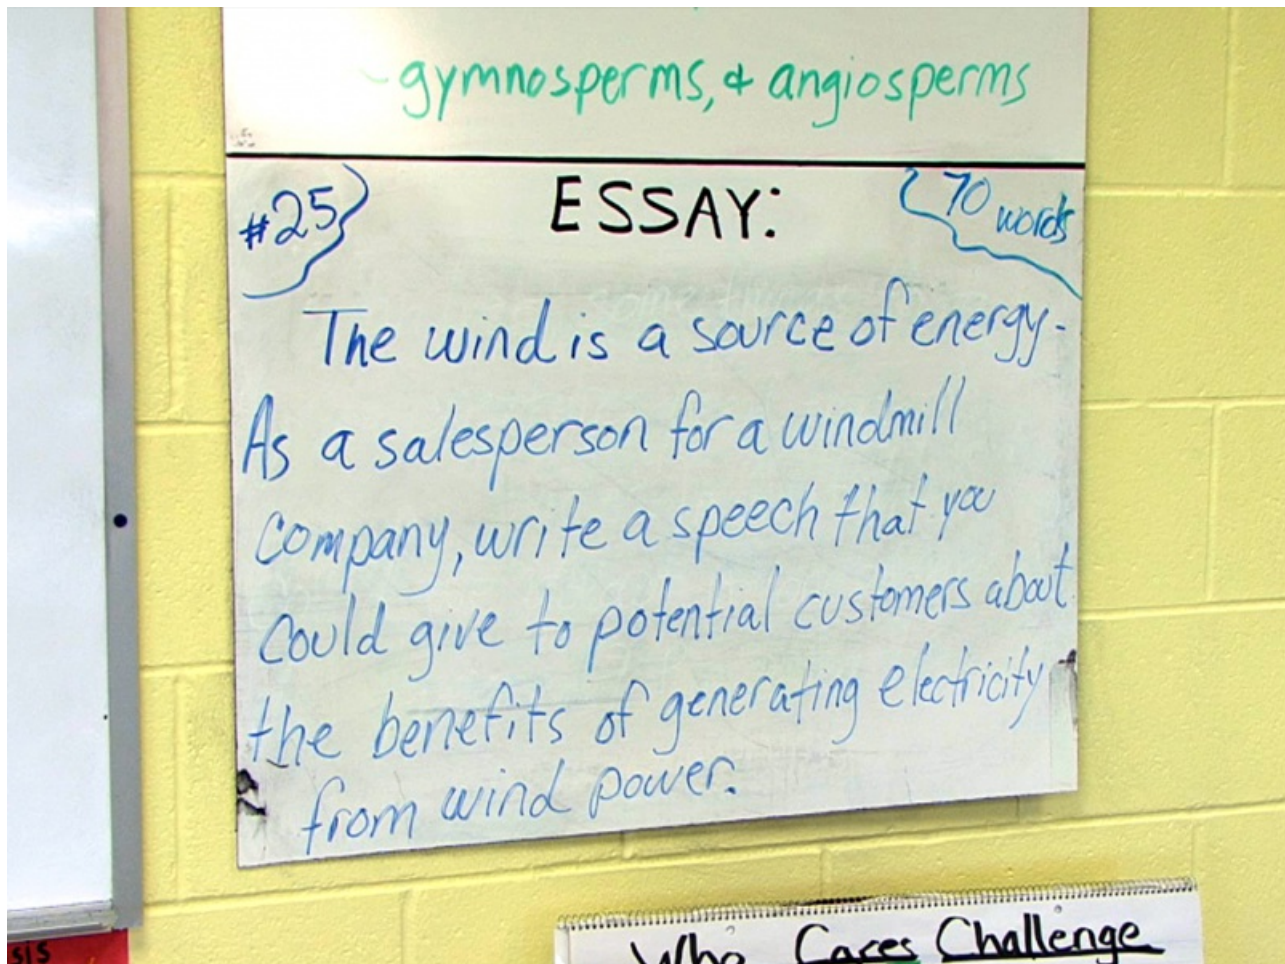 - gymnosperms, & angiosperms
#25
ESSAY:
70 words
The wind is a source of energy.
As a salesperson for a windmill
company, write a speech that you
could give to potential customers about
the benefits of generating electricity
from wind power.
Who Cares Challenge
sis